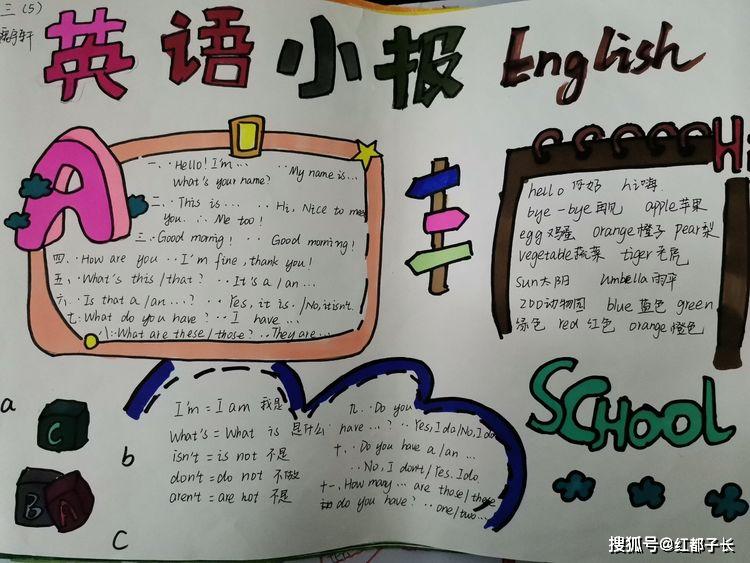 三(5)
英语小报 English
A
一、· Hello! I'm ··· ·· My name is...
What's your name?
二·· This is ···  ·· Hi, Nice to me
you. ·· Me too!
三·· Good morning! ·· Good morning!
四·· How are you ·· I'm fine, thank you!
五·· What's this / that? ·· It's a / an ...
六·· Is that a / an ...? ·· Yes, it is. /No, it isn't.
七·· What do you have? ·· I have ...
八·· What are these / those? ·· They are ...
H
hello 你好 hi 嗨
bye-bye 再见 apple 苹果
egg 鸡蛋 orange 橙子 pear 梨
vegetable 蔬菜 tiger 老虎
sun 太阳 umbella 雨伞
zoo 动物园 blue 蓝色 green
绿色 red 红色 orange 橙色
SCHOOL
a
b
c
C
B
A
I'm = I am 我是
What's = What is 是什么
isn't = is not 不是
don't = do not 不做
aren't = are not 不是
九·· Do you
have ...? ·· Yes, I do / No, I do
十·· Do you have a / an ...
·· No, I don't / Yes, I do.
十一·· How many ... are those / these
do you have? ·· one / two ...
搜狐号@红都子长